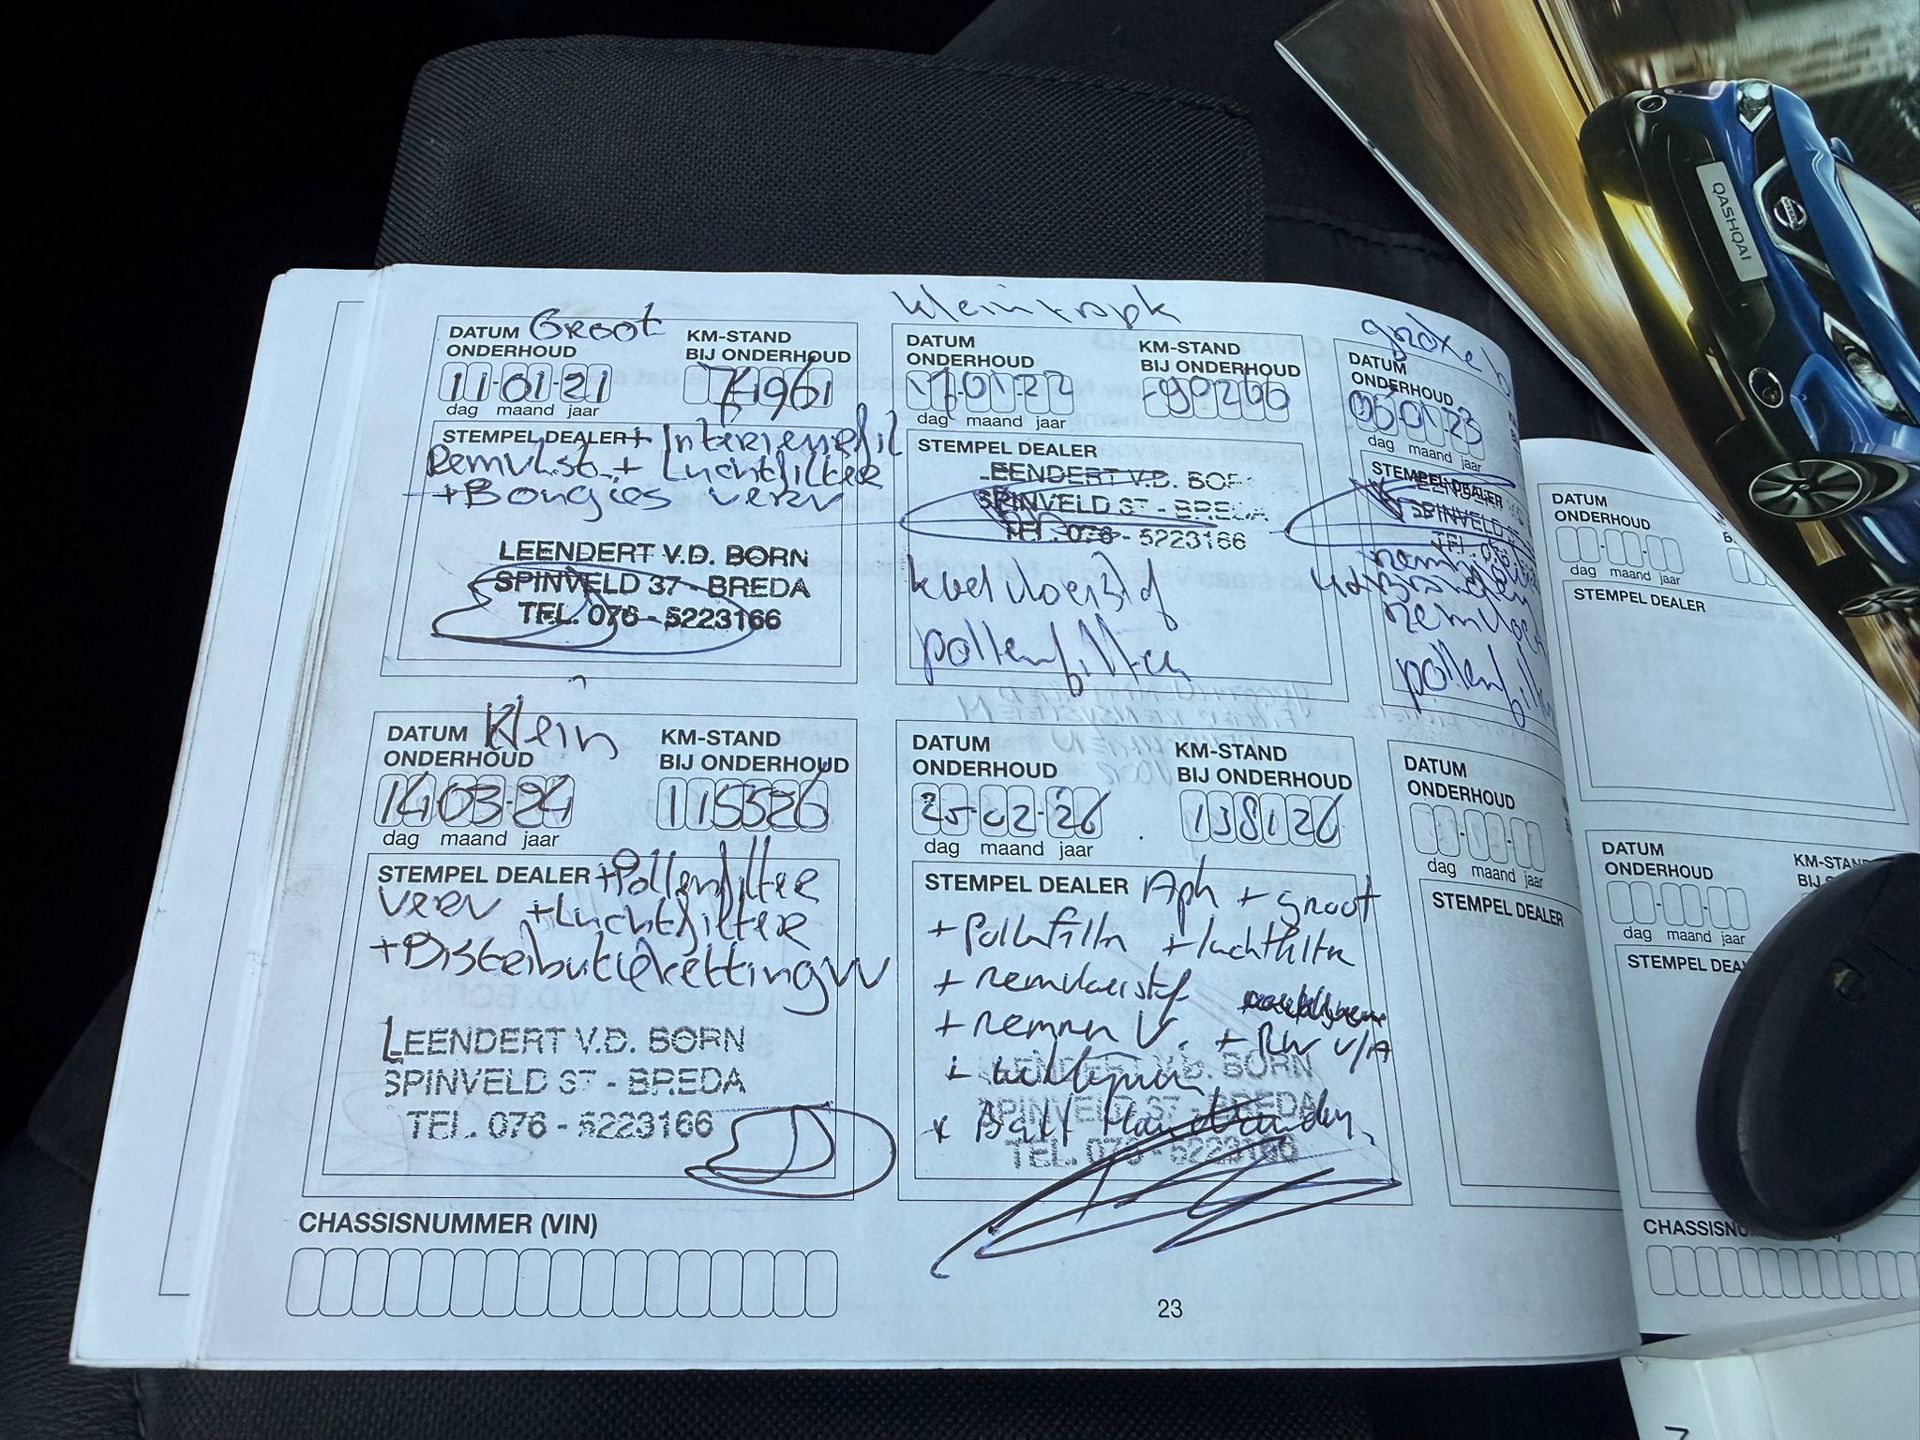 Groot
DATUM
ONDERHOUD
KM-STAND
BIJ ONDERHOUD
11-01-21
dag maand jaar
STEMPEL DEALER + Interieurfil
Remvlst. + Luchtfilter
+ Bougies verv
LEENDERT V.D. BORN
SPINVELD 37 - BREDA
TEL. 076 - 5223166
DATUM
ONDERHOUD
KM-STAND
BIJ ONDERHOUD
17-01-22
90266
dag maand jaar
STEMPEL DEALER
LEENDERT V.D. BOR
SPINVELD 37 - BREDA
TEL. 076 - 5223166
koelvloeistof
pollenfilter
DATUM
ONDERHOUD
23
dag maand jaar
STEMPEL DEALER
SPINVELD
TEL. 076
pollenfilter
Klein
DATUM
ONDERHOUD
KM-STAND
BIJ ONDERHOUD
14-03-24
115526
dag maand jaar
STEMPEL DEALER + Pollenfilter
verv + Luchtfilter
+ Distributieketting vv
LEENDERT V.D. BORN
SPINVELD 37 - BREDA
TEL. 076 - 5223166
DATUM
ONDERHOUD
KM-STAND
BIJ ONDERHOUD
25-02-26
138126
dag maand jaar
STEMPEL DEALER Apk + groot
+ Pollenfiltr + luchtfiltr
+ remvloeistof
+ remmen V. + RW V/A
+ uitlijnen
LEENDERT V.D. BORN
SPINVELD 37 - BREDA
TEL. 076 - 5223166
DATUM
ONDERHOUD
dag maand jaar
STEMPEL DEALER
CHASSISNUMMER (VIN)
23
DATUM
ONDERHOUD
dag maand jaar
STEMPEL DEALER
DATUM
ONDERHOUD
KM-STAN
dag maand jaar
STEMPEL DEA
CHASSISN
QASHQAI
NISSAN